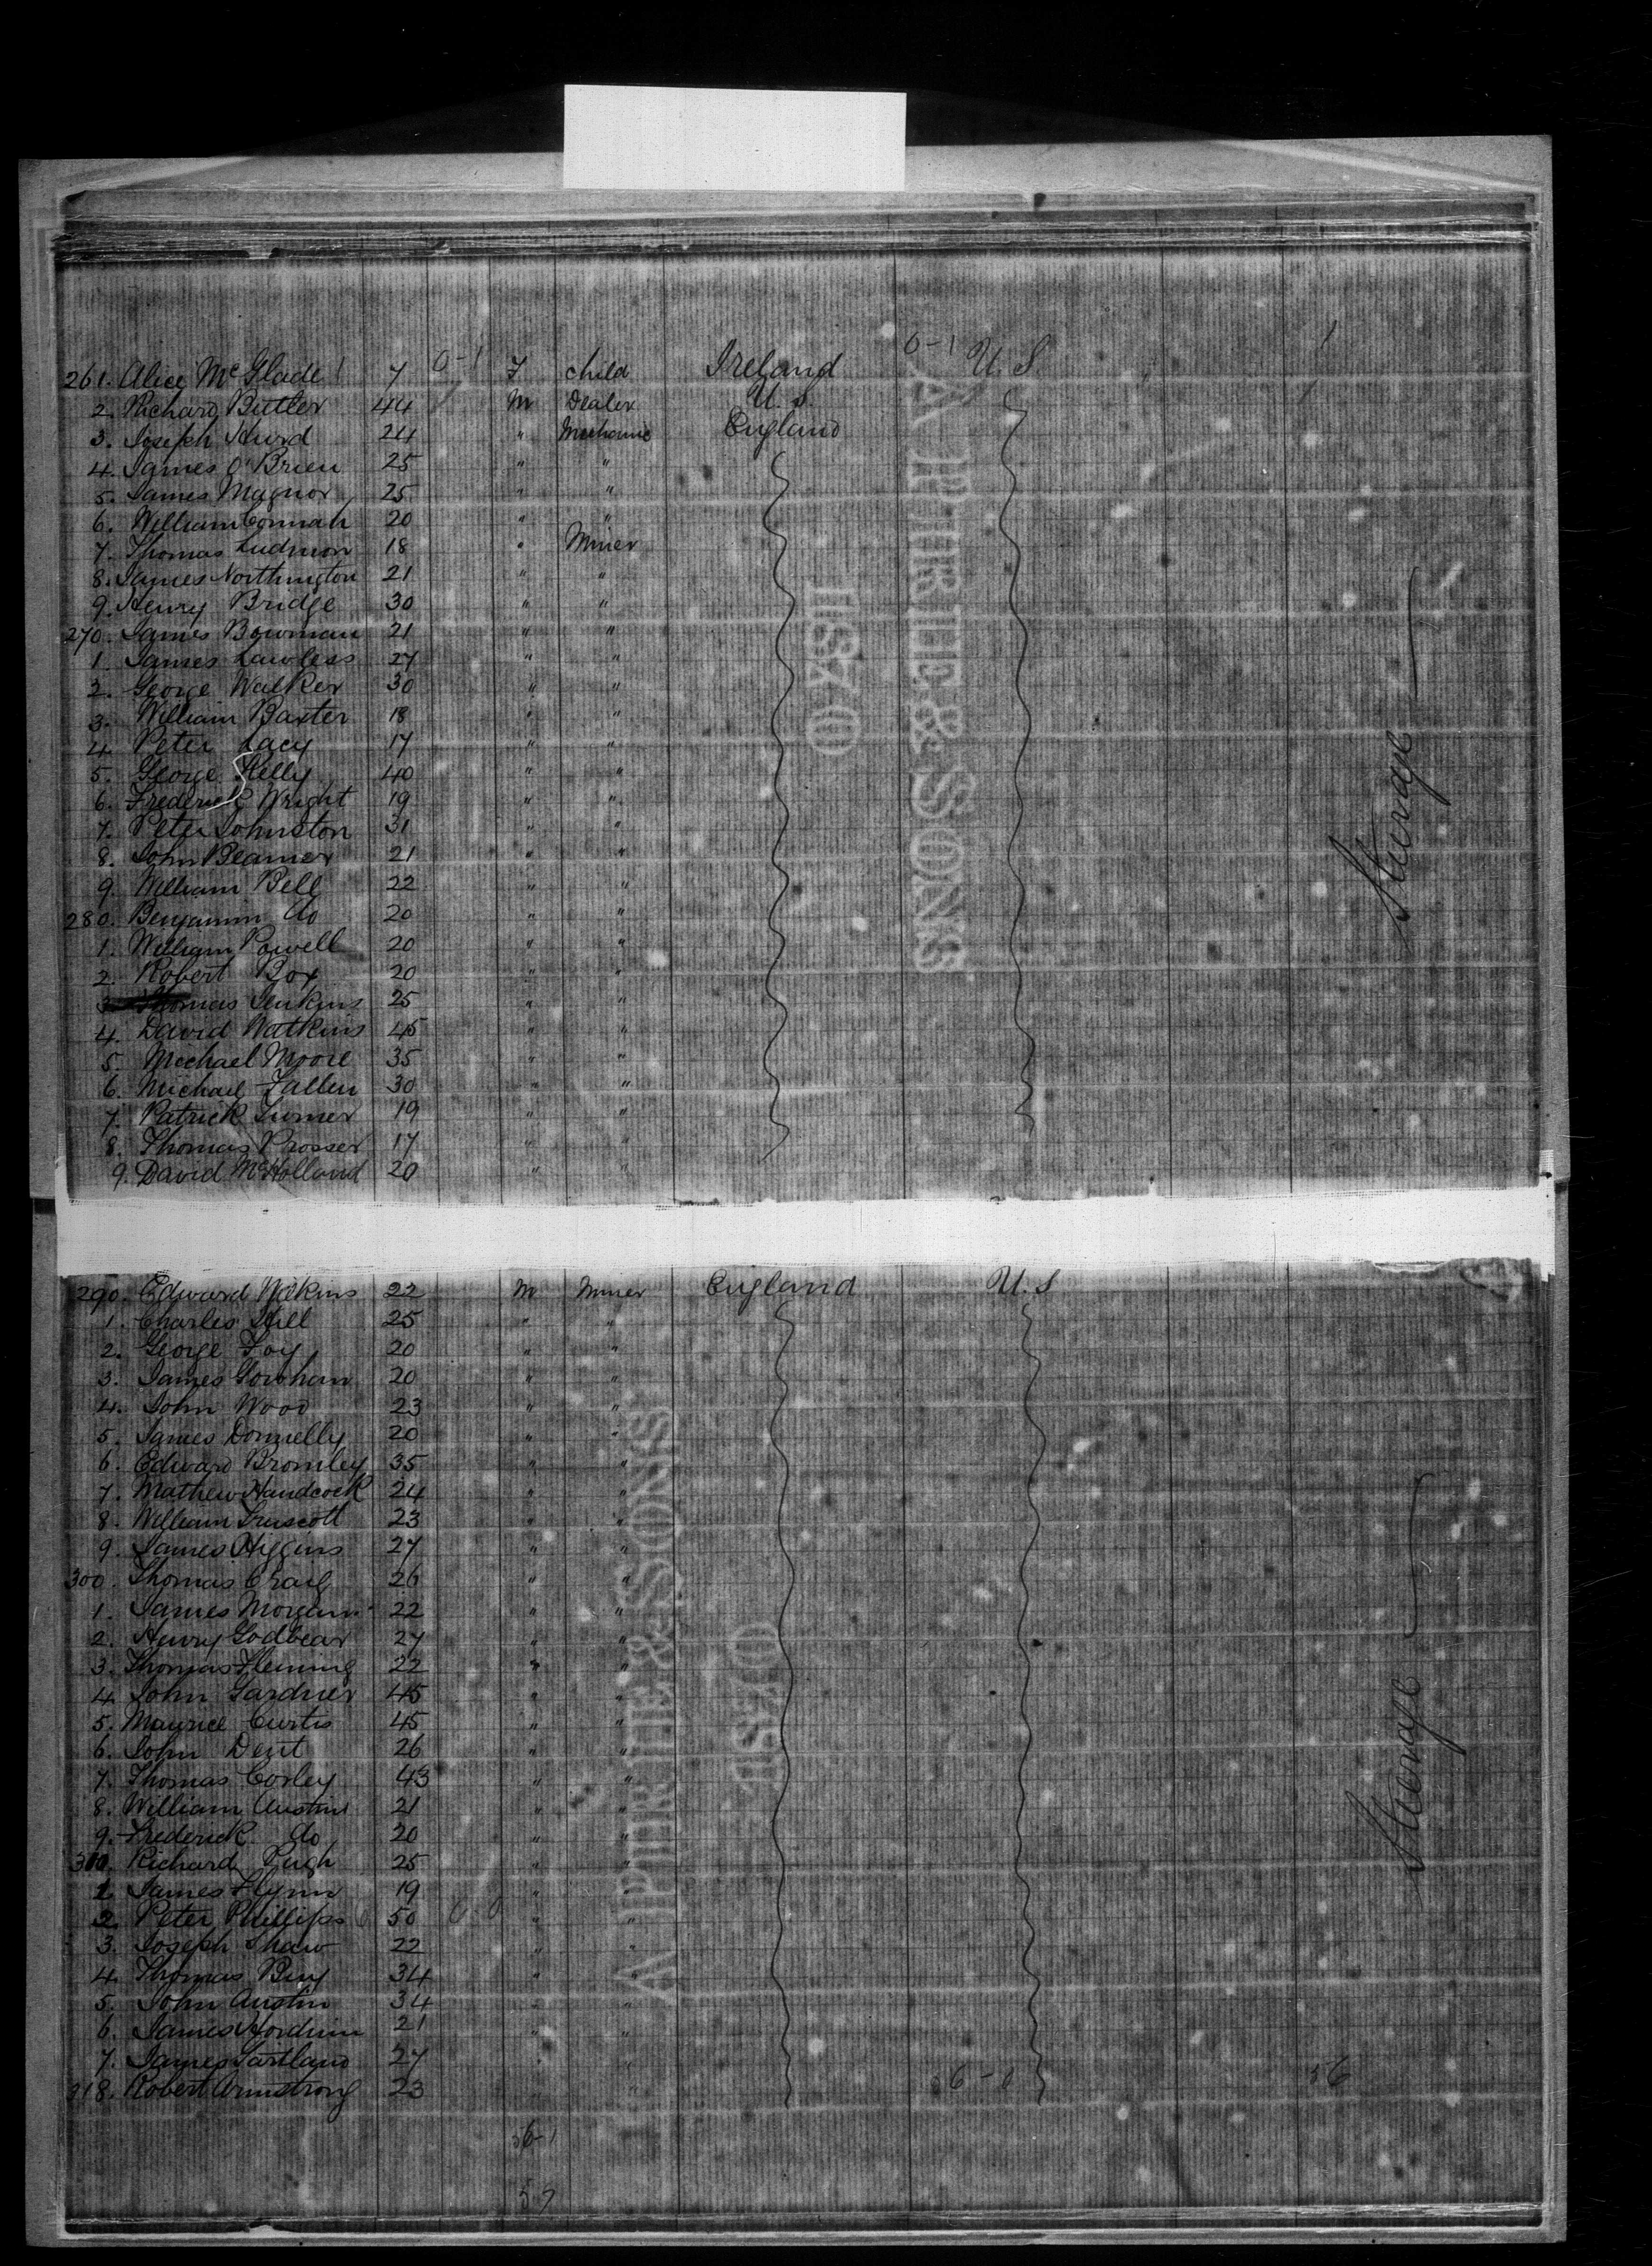 261. Alice McGlade 7 0-1 F Child Ireland 0-1 U.S
2. Richard Butler 44 M Dealer U.S.
3. Joseph Hurd 24 " Mechanic England
4. James O'Brien 25 " "
5. James Magnor 25 " "
6. William Connah 20 " "
7. Thomas Ludmon 18 " Miner
8. James Northington 21 " "
9. Henry Bridge 30 " "
270. James Bowman 21 " "
1. James Lawless 27 " "
2. George Walker 30 " "
3. William Baxter 18 " "
4. Peter Lacy 17 " "
5. George Kelly 40 " "
6. Frederick Wright 19 " "
7. Peter Johnston 31 " "
8. John Beamer 21 " "
9. William Bell 22 " "
280. Benjamin do 20 " "
1. William Powell 20 " "
2. Robert Box 20 " "
3 Thomas Jenkins 25 " "
4. David Watkins 45 " "
5. Michael Moore 35 " "
6. Michael Fallen 30 " "
7. Patrick Turner 19 " "
8. Thomas Prosser 17 " "
9. David McHolland 20 " "
Steerage
A PIRIE & SONS
1870
290. Edward Wilkins 22 M Miner England U.S
1. Charles Hill 25 " "
2. George Foy 20 " "
3. James 20 " "
4. John Wood 23 " "
5. James Donnelly 20 " "
6. Edward Bromley 35 " "
7. Mathew Handcock 24 " "
8. William Truscott 23 " "
9. James Higgins 27 " "
300. Thomas Craig 26 " "
1. James Morgan 22 " "
2. Henry Godbear 27 " "
3. Thomas Fleming 22 " "
4. John Gardner 45 " "
5. Maurice Curtis 45 " "
6. John Dent 26 " "
7. Thomas Corley 43 " "
8. William Austin 21 " "
9. Frederick do 20 " "
310. Richard Pugh 25 " "
1. James Flynn 19 " "
2. Peter Phillips 50 " "
3. Joseph Shaw 22 " "
4. Thomas 34 " "
5. John Austin 34 "
6. James 21 " "
7. James Gartland 27
318. Robert Armstrong 23 56
Steerage
A PIRIE & SONS
1870
56-1
57